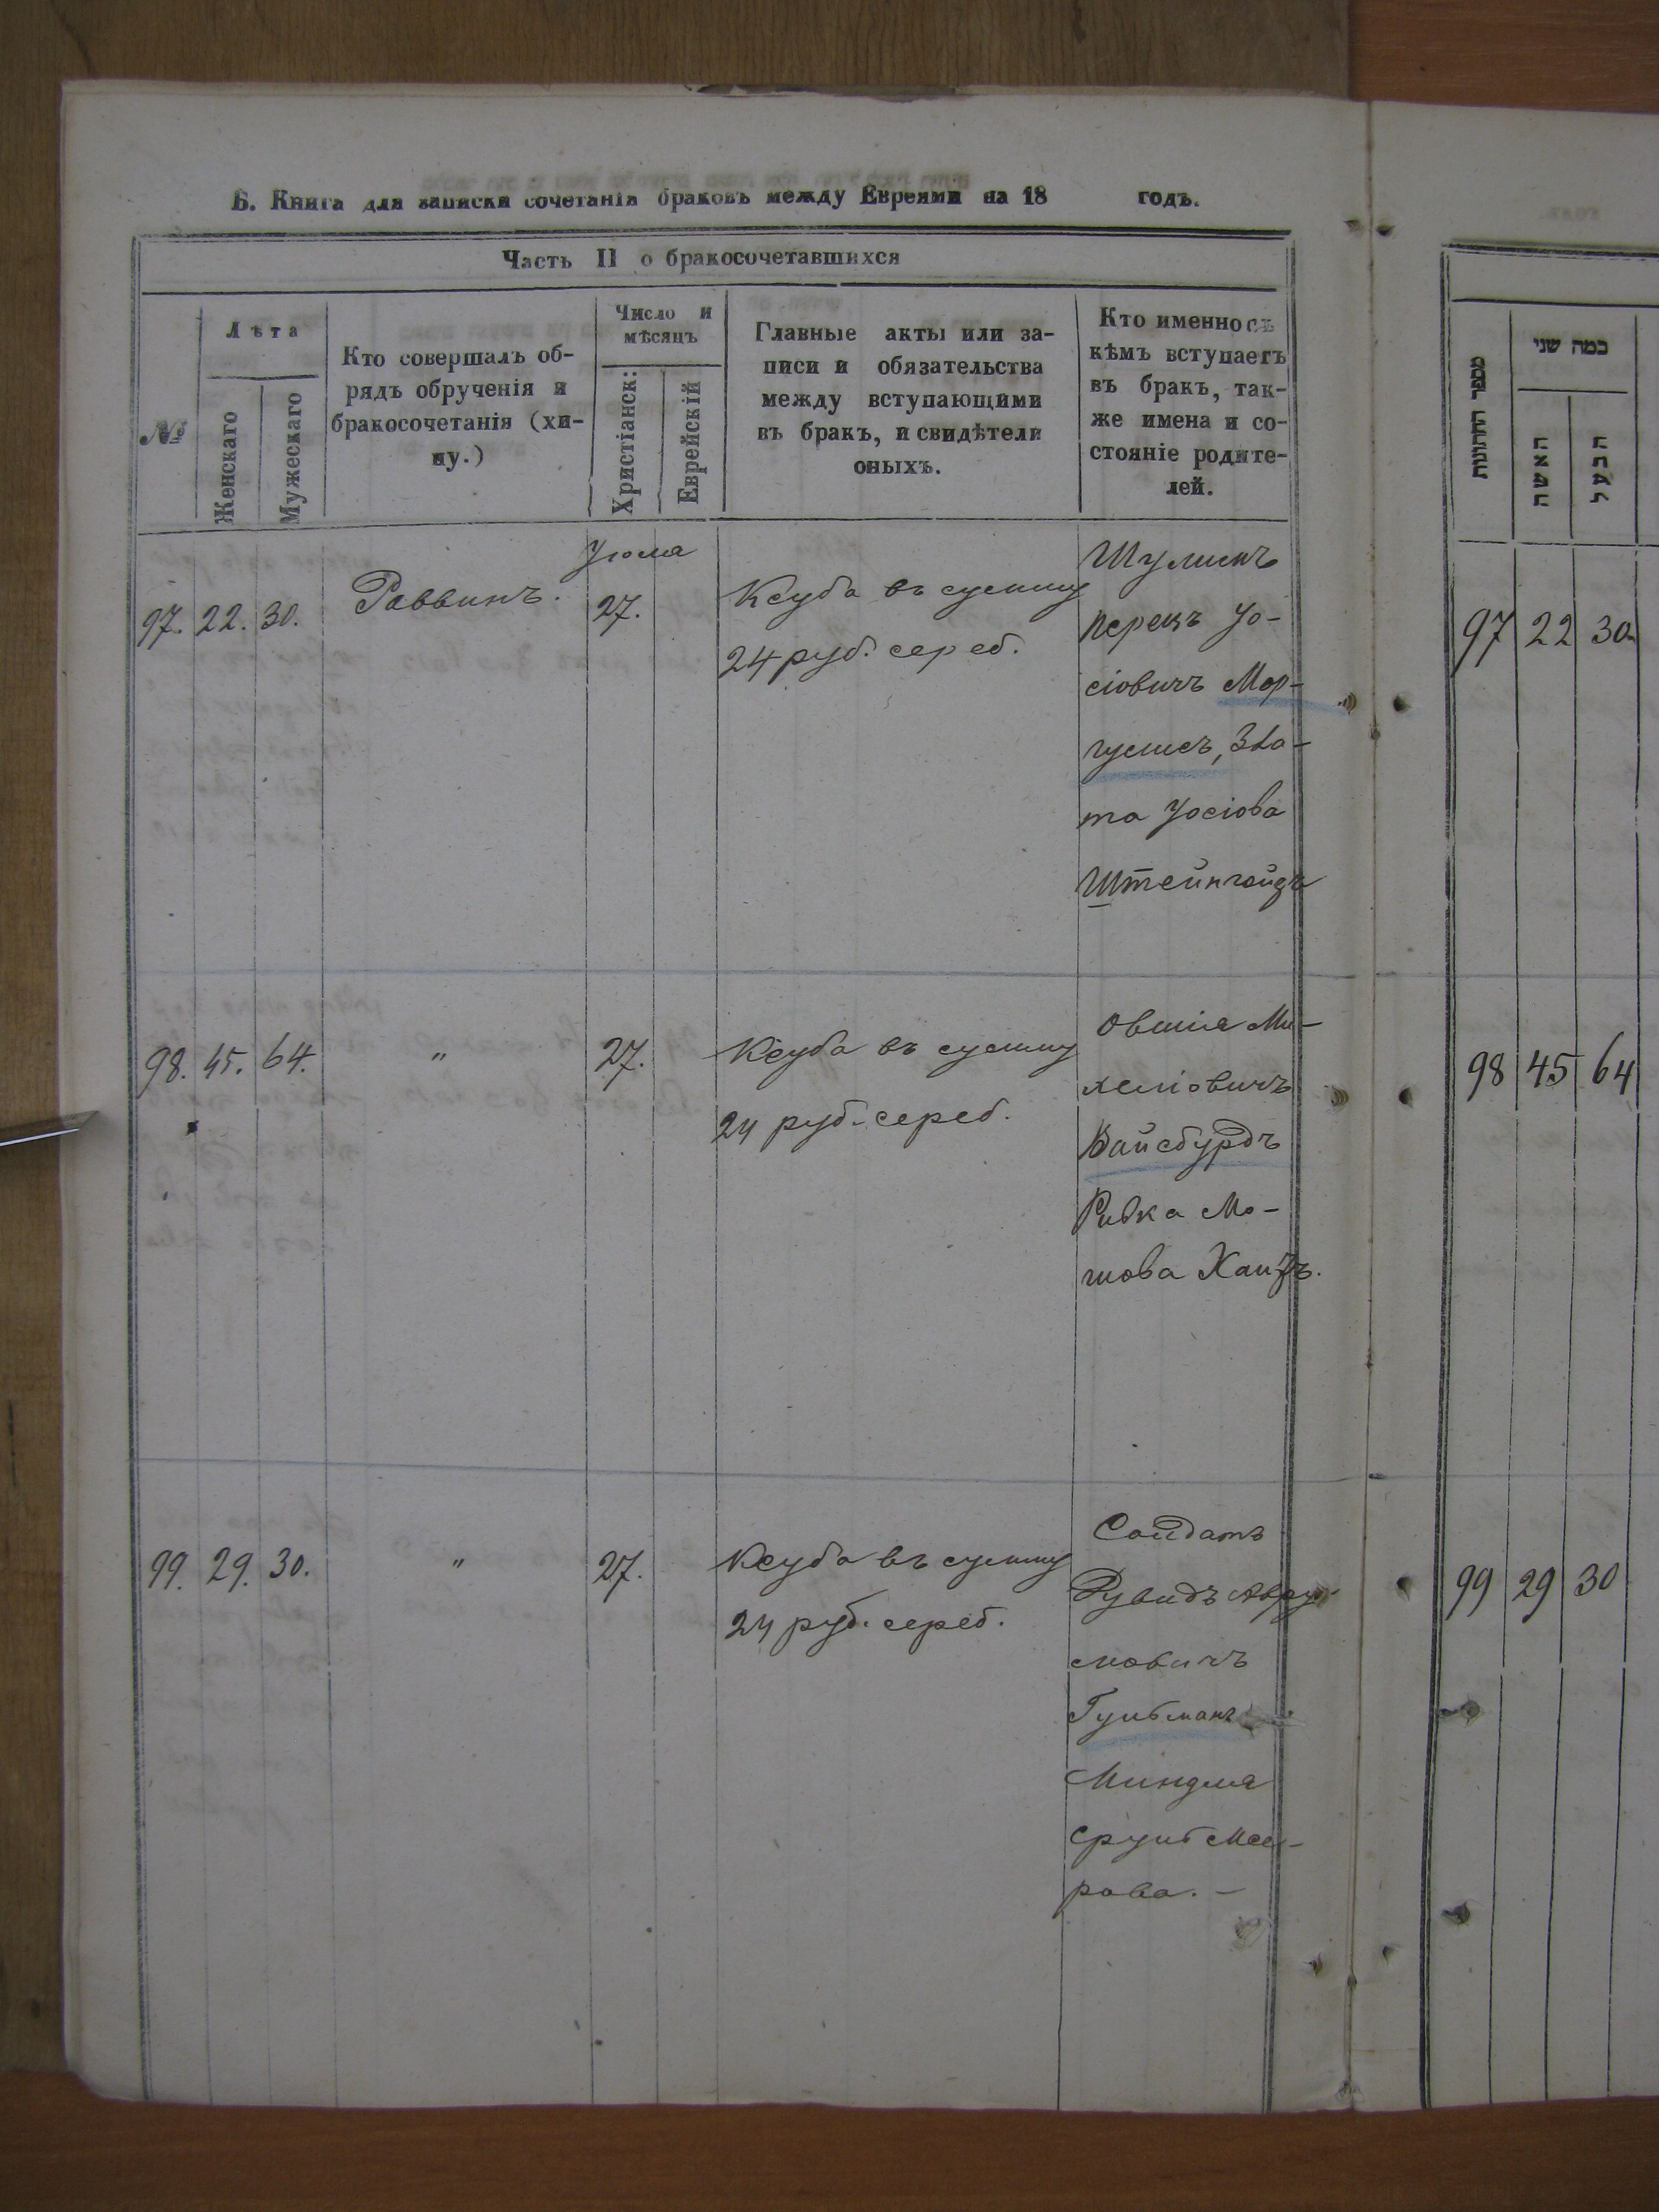 Б. Книга для записки сочетанія браковъ между Евреями на 18 годъ.
Часть II о бракосочетавшихся
№
Лѣта
Женскаго
Мужескаго
Кто совершалъ об-
рядъ обрученія и
бракосочетанія (хи-
пу.)
Число и
мѣсяцъ
Христіанск:
Еврейскій
Главные акты или за-
писи и обязательства
между вступающими
въ бракъ, и свидѣтели
оныхъ.
Кто именно съ
кѣмъ вступаетъ
въ бракъ, так-
же имена и со-
стояніе родите-
лей.
97. 22. 30.
Раввинъ.
Іюля
27.
Ксуба въ сумму
24 руб. сереб.
Шулимъ
Перецъ Іо-
сіовичъ Мор-
гулисъ, Зла-
та Іосіова
Штейнгойзъ
98. 45. 64.
"
27.
Ксуба въ сумму
24 руб. сереб.
Овшія Ми-
хеліовичъ
Вайсбурдъ
Ривка Мо-
шова
99. 29. 30.
"
27.
Ксуба въ сумму
24 руб. сереб.
Солдатъ
Рувидъ Авру-
мовичъ
Гульманъ
Миндля
Сруль Мее-
рова. -
מספר החתונות
כמה שני
האשה
הבעל
97 22 30
98 45 64
99 29 30